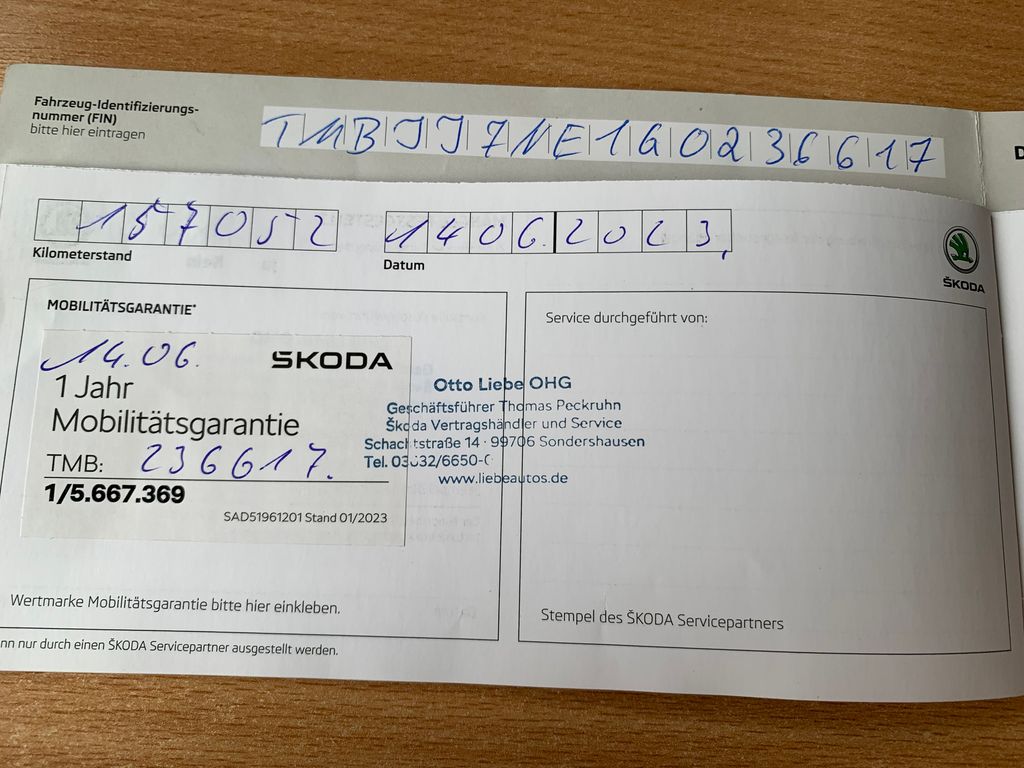 Fahrzeug-Identifizierungs-
nummer (FIN)
bitte hier eintragen
TMBJJ7NE1G0236617
157052
14 06. 2023
Kilometerstand
Datum
ŠKODA
MOBILITÄTSGARANTIE*
14.06.
ŠKODA
1 Jahr
Mobilitätsgarantie
TMB: 236617.
1/5.667.369
SAD51961201 Stand 01/2023
Service durchgeführt von:
Otto Liebe OHG
Geschäftsführer Thomas Peckruhn
Škoda Vertragshändler und Service
Schachtstraße 14 · 99706 Sondershausen
Tel. 03632/6650-0
www.liebeautos.de
Wertmarke Mobilitätsgarantie bitte hier einkleben.
Stempel des ŠKODA Servicepartners
nn nur durch einen ŠKODA Servicepartner ausgestellt werden.